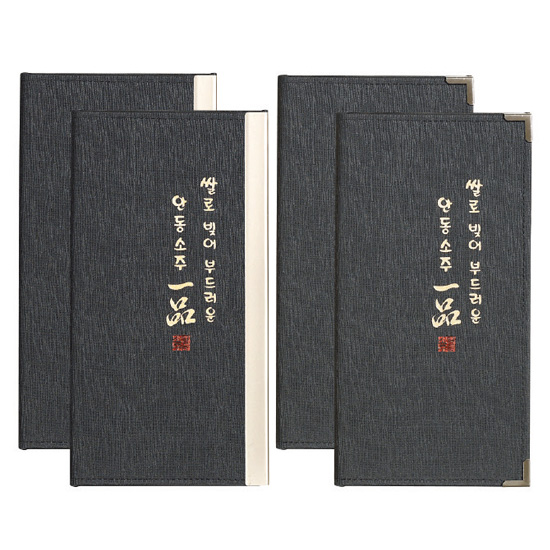 쌀로 빚어 부드러운
안동소주 一品
쌀로 빚어 부드러운
안동소주 一品